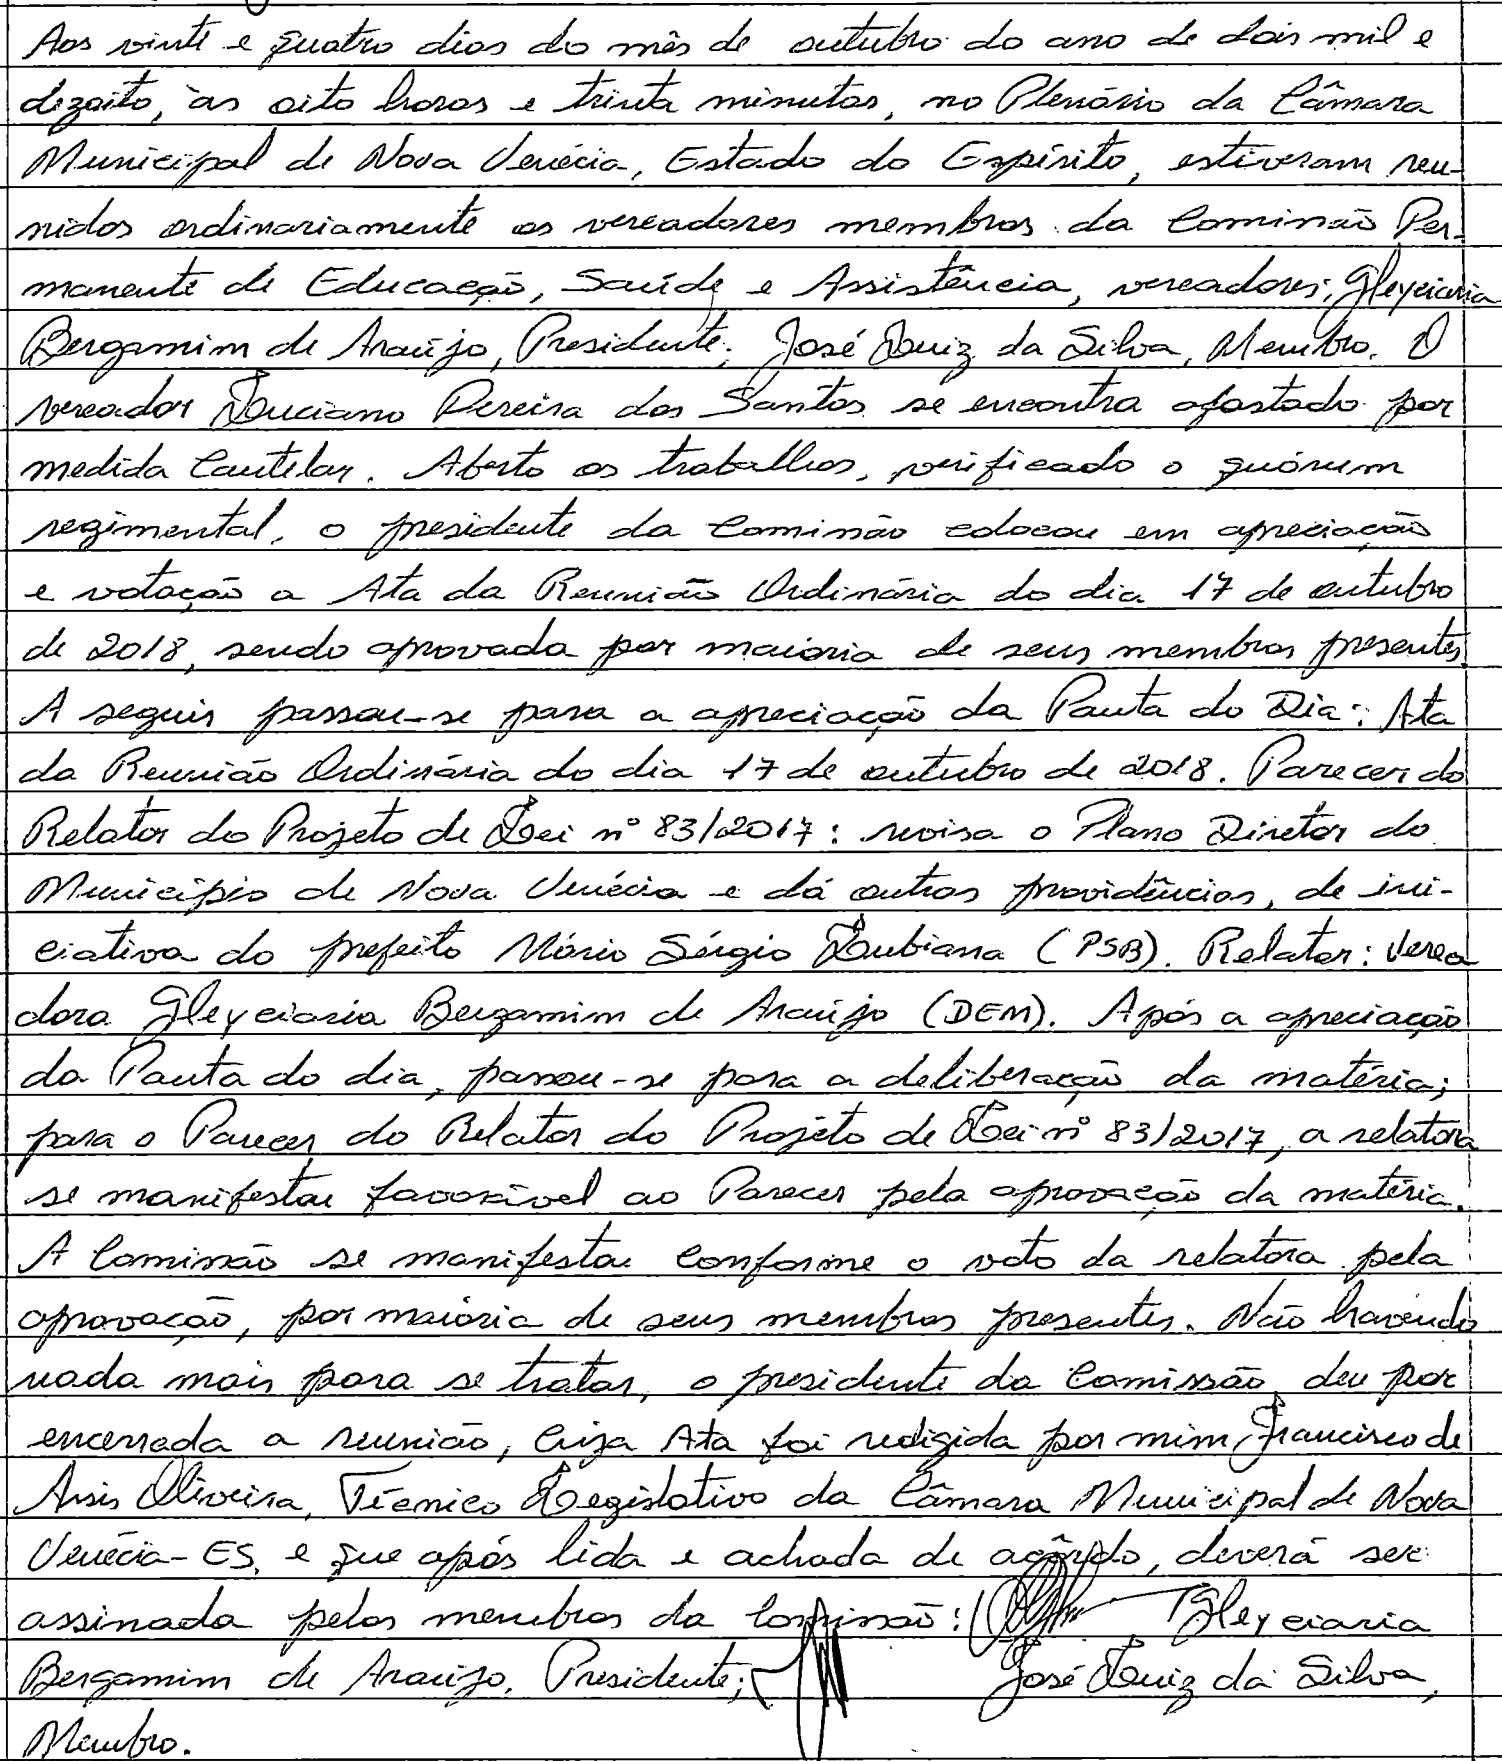 Aos vinte e quatro dias do mês de outubro do ano de dois mil e
dezoito, às oito horas e trinta minutos, no Plenário da Câmara
Municipal de Nova Venécia, Estado do Espírito, estiveram reu-
nidos ordinariamente os vereadores membros da Comissão Per-
manente de Educação, Saúde e Assistência, vereadores; Gleyciaria
Bergamim de Araújo, Presidente; José Luiz da Silva, Membro. O
vereador Luciano Pereira dos Santos se encontra afastado por
medida Cautelar. Aberto os trabalhos, verificado o quórum
regimental, o presidente da Comissão colocou em apreciação
e votação a Ata da Reunião Ordinária do dia 17 de outubro
de 2018, sendo aprovada por maioria de seus membros presentes.
A seguir passou-se para a apreciação da Pauta do Dia: Ata
da Reunião Ordinária do dia 17 de outubro de 2018. Parecer do
Relator do Projeto de Lei nº 83/2017: revisa o Plano Diretor do
Município de Nova Venécia e dá outras providências, de ini-
ciativa do prefeito Mário Sérgio Lubiana (PSB). Relator: Verea
dora Gleyciaria Bergamim de Araújo (DEM). Após a apreciação
da Pauta do dia, passou-se para a deliberação da matéria;
para o Parecer do Relator do Projeto de Lei nº 83/2017, a relatora
se manifestou favorável ao Parecer pela aprovação da matéria.
A Comissão se manifestou conforme o voto da relatora pela
aprovação, por maioria de seus membros presentes. Não havendo
nada mais para se tratar, o presidente da Comissão, deu por
encerrada a reunião, cuja Ata foi redigida por mim, Francisco de
Assis Oliveira, Técnico Legislativo da Câmara Municipal de Nova
Venécia-ES, e que após lida e achada de acôrdo, deverá ser
assinada pelos membros da Comissão: Gleyciaria
Bergamim de Araújo, Presidente; José Luiz da Silva,
Membro.